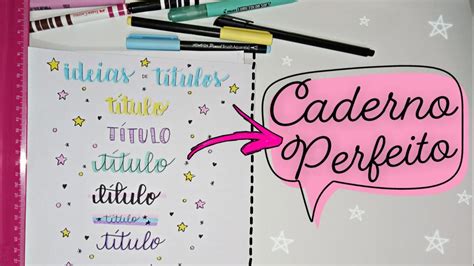 ideias de títulos
título
TÍTULO
título
título
título
título
Caderno
Perfeito